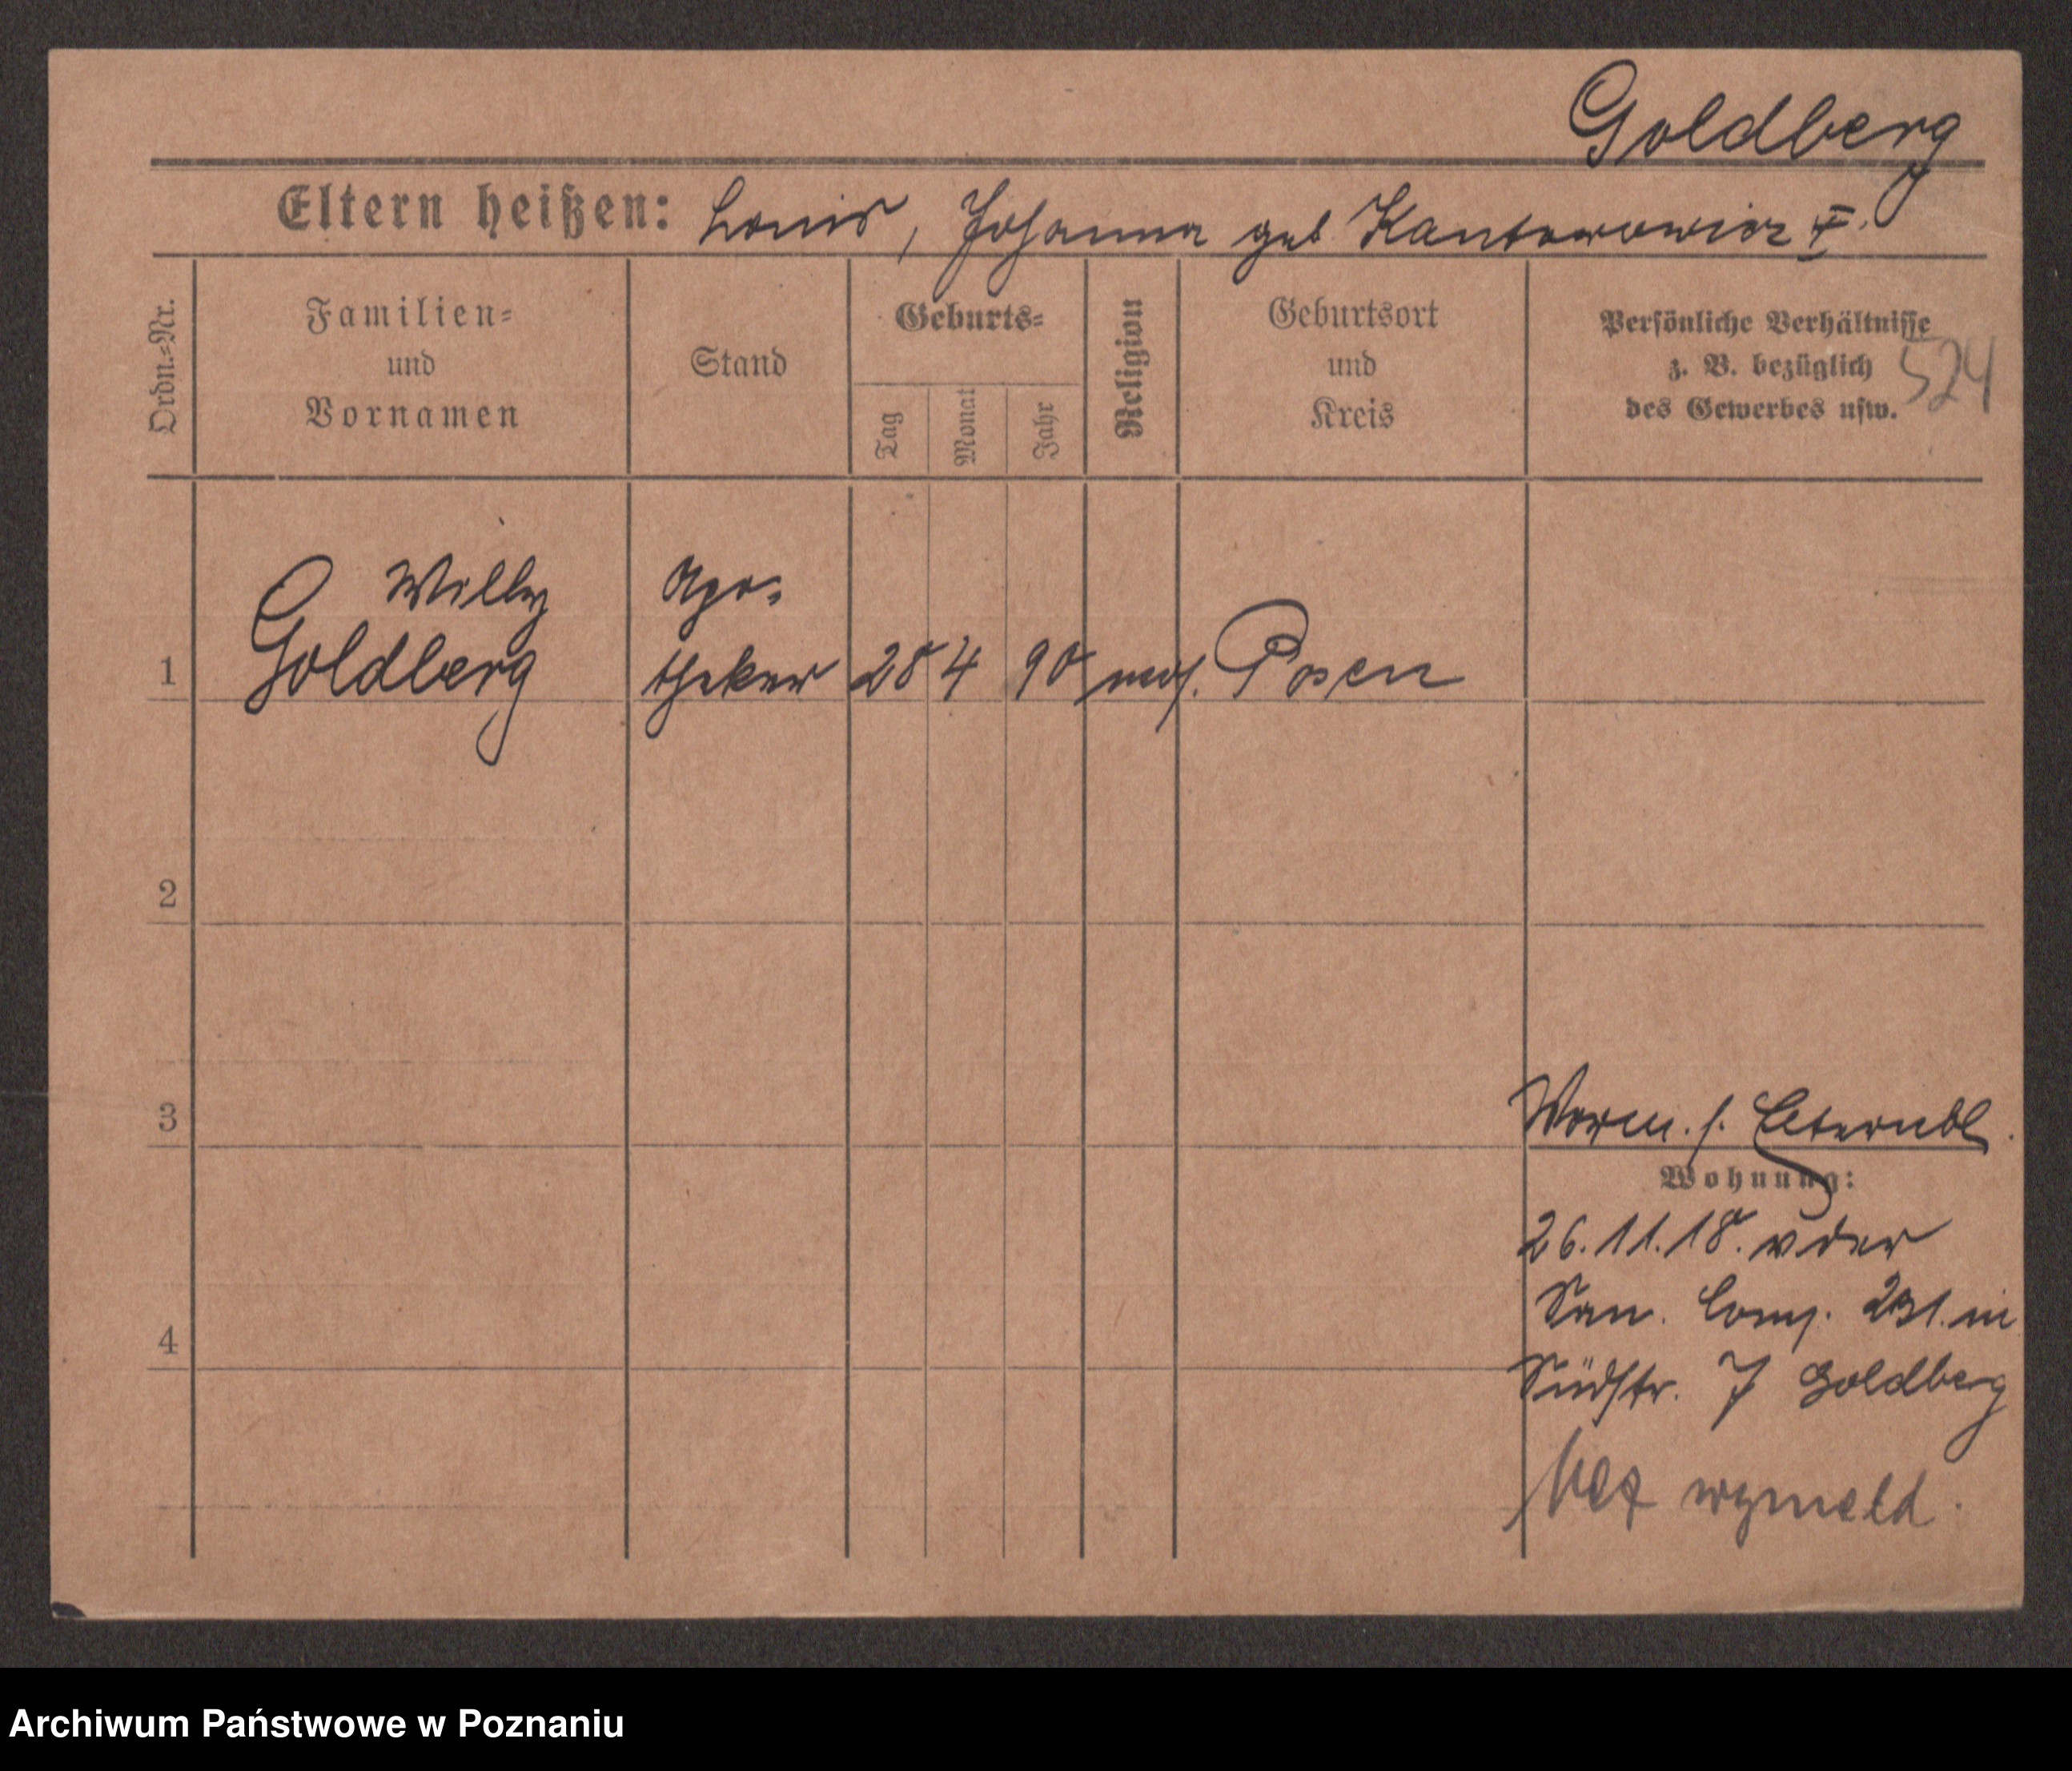 Goldberg
Eltern heißen: Louis, Johanna geb Kantorowicz
Ordn.=Nr.
Familien=
und
Vornamen
Stand
Geburts=
Tag
Monat
Jahr
Religion
Geburtsort
und
Kreis
Persönliche Verhältnisse
z. B. bezüglich
des Gewerbes usw.
524
Willy Apo=
1 Goldberg theker 28 4 90 mos. Posen
2
3
Vorm. s. Elternbl.
Wohnung:
26.11.18. v der
San. Comp. 231. in
4
Südstr. 7 Goldberg
bez wymeld.
Archiwum Państwowe w Poznaniu